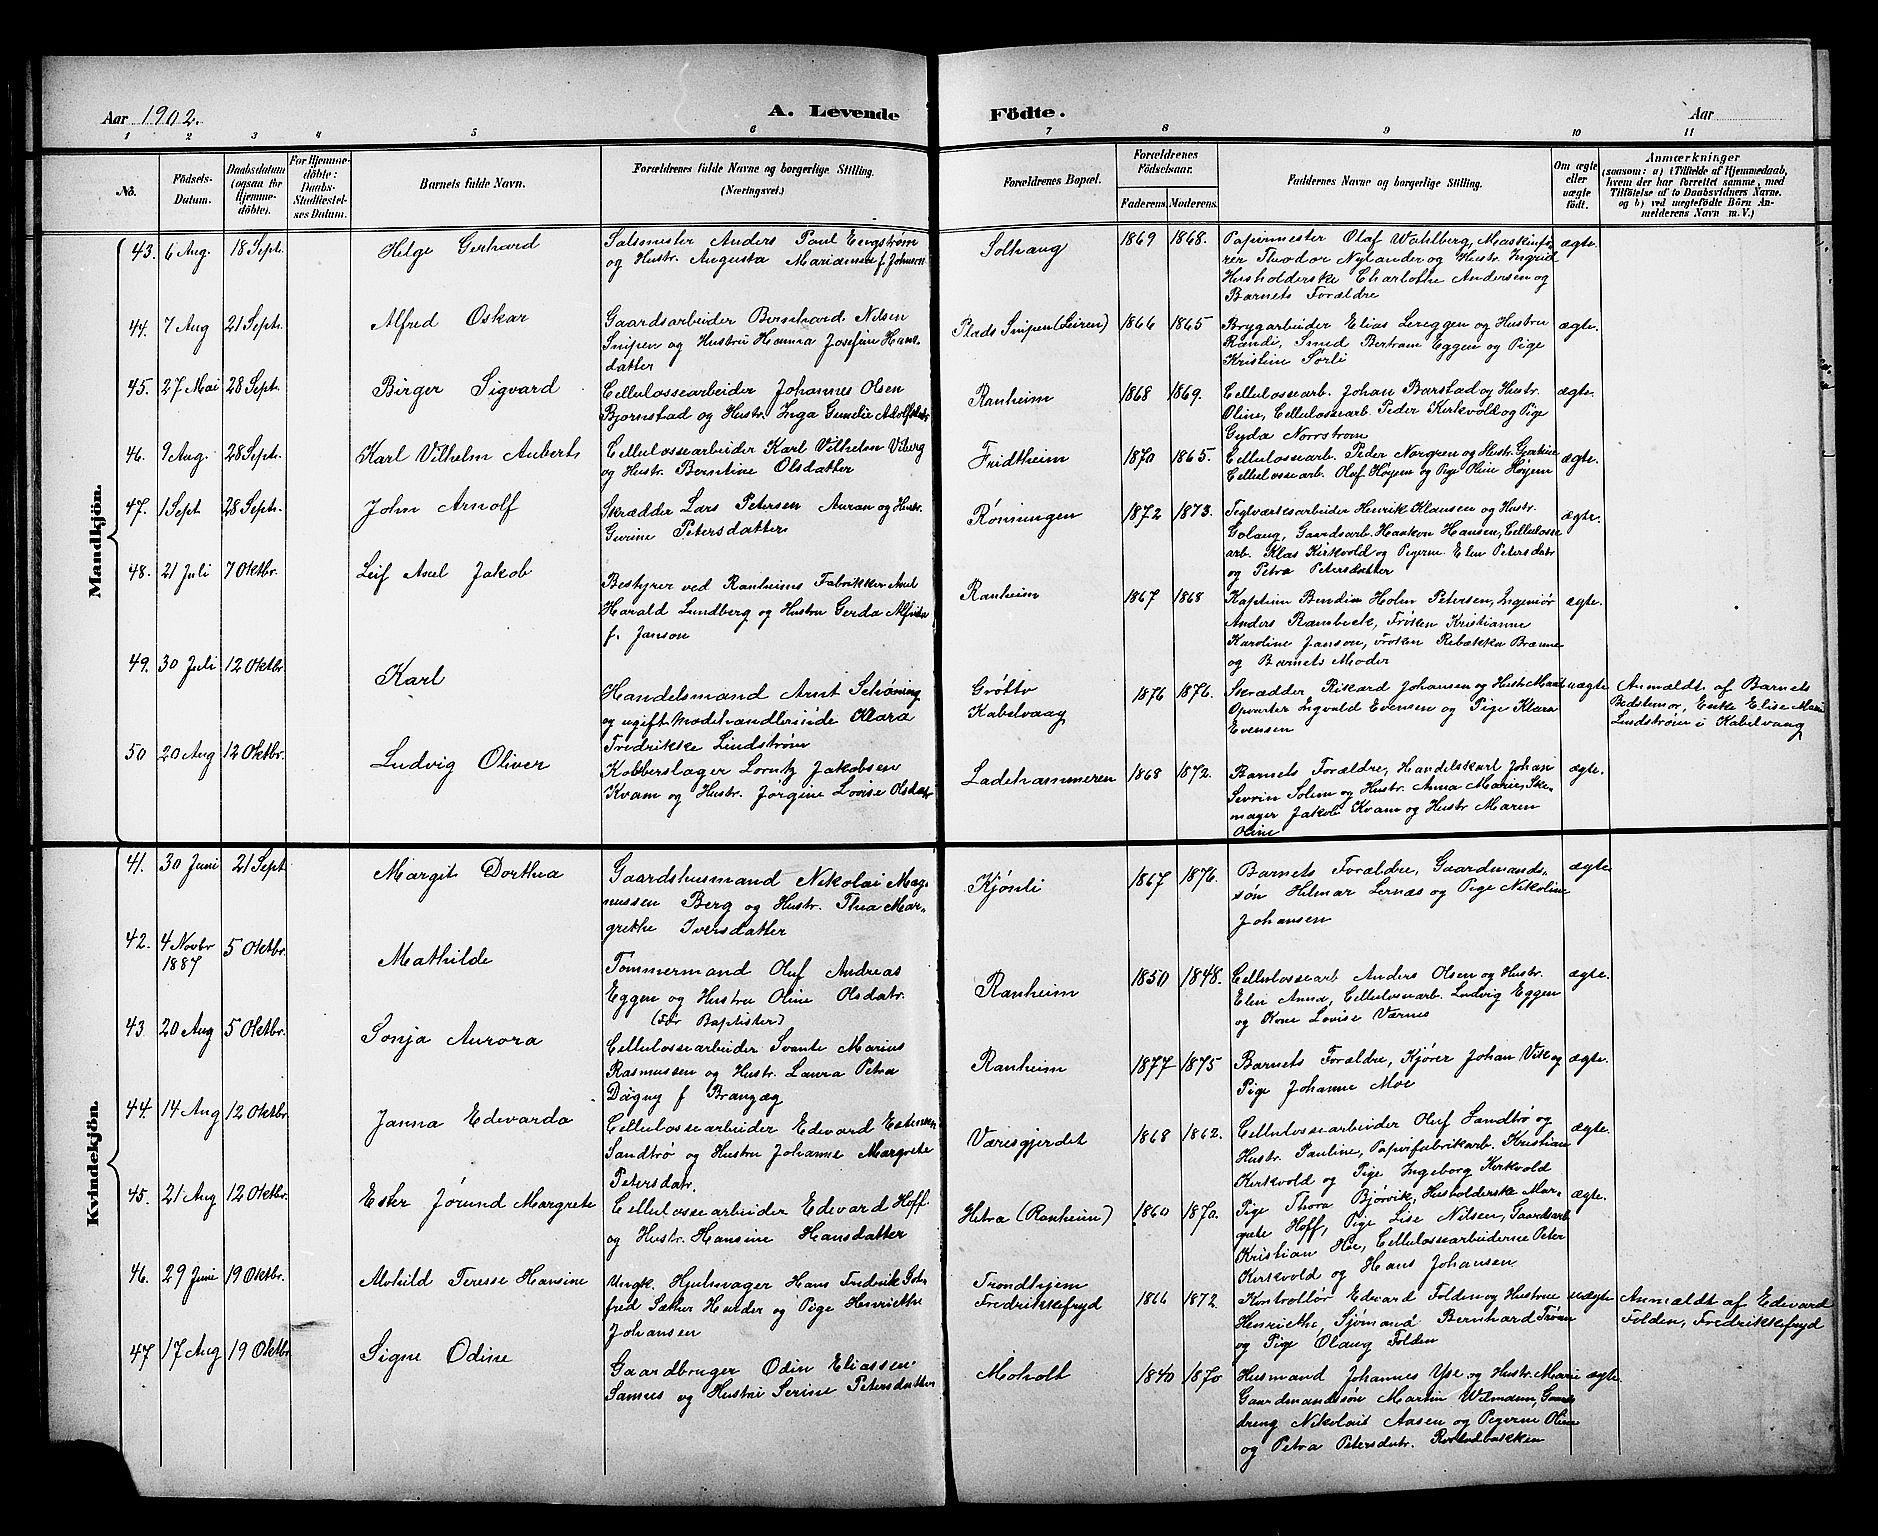 Aar 1902. A. Levende Födte. Aar
1 2 3 4 5 6 7 8 9 10 11
No. Födsels-Datum. Daabsdatum (ogsaa for Hjemmedöbte). For Hjemmedöbte: Daabs-Stadfæstelses Datum. Barnets fulde Navn. Forældrenes fulde Navne og borgerlige Stilling. (Næringsvei.) Forældrenes Bopæl. Forældrenes Födselsaar. Faderens. Moderens. Faddernes Navne og borgerlige Stilling. Om ægte eller uægte födt. Anmærkninger (saasom: a) i Tilfælde af Hjemmedaab, hvem der har forrettet samme, med Tilföielse af to Daabsvidners Navne. og b) ved uegtefödte Börn Anmelderens Navn m. V.)
Mandkjön.
43. 6 Aug. 18 Sept. Helge Gerhard
Salsmester Anders Paul Engstrøm
og Hustr. Augusta f. Johnsen
Solvang 1869 1868.
Papirmester Olaf Wahlberg, Maskinfø-
rer Theodor Nylander og Hustr. Ingrid
Husholderske Charlothe Andersen og
Barnets Forældre
ægte.
44. 7 Aug 21 Sept. Alfred Oskar
Gaardsarbeider Bernhard Nilsen
Snipen og Hustru Hanna Josefine Hans-
datter
Plads Snipen (Leiren) 1866 1865
Brygarbeider Elias Lereggen og Hustru
Randi, Smed Bertram Eggen og Pige
Kristine Sorli
ægte.
45. 27 Mai 28 Sept. Birger Sigvard
Cellulossearbeider Johannes Olsen
Bjørnstad og Hustr. Inga Gundie Adolfsdatr
Ranheim 1868 1869.
Cellulossearb. Johan Barstad og Hustr.
Oline, Cellulossearb. Peder Kirkvold og Pige
Gyda Norrstrom
ægte.
46. 9 Aug. 28 Sept. Karl Vilhelm Aubert
Cellulossearbeider Karl Vilhelm Viberg
og Hustr. Berntine Olsdatter
Fridtheim 1870 1865.
Cellulossearb. Peder Norgren og Hustr. Gjertine
Cellulossearb. Oluf Høyem og Pige Oline Høyem
ægte.
47. 1 Sept 28 Sept. John Arnolf
Skrædder Lars Petersen Auran og Hustr.
Gurine Petersdatter
Rønningen 1872 1873.
Teglværksarbeider Henrik Klausen og Hustr.
Golaug, Gaardsarb. Haakon Hansen, Cellulosse
arb. Klas Kirkvold og Pigerne Elen Petersdatr
og Petra Petersdatter
ægte.
48. 21 Juli 7 Oktbr. Leif Axel Jakob
Bestyrer ved Ranheims Fabrikker Axel
Harald Lundberg og Hustru Gerda Alfrida
f. Janson
Ranheim 1867 1868
Kaptein Bendix Holm Petersen, Ingeniør
Anders Rambeck, Frøken Kristianne
Karoline Janson, Frøken Rebækka Brænne
og Barnets Moder
ægte.
49. 30 Juli 12 Oktbr. Karl
Handelsmand Arnt Schøning
og ugift Modehandlerinde Klara
Fredrikke Lindstrøm
Grøtto
Kabelvaag 1876 1876.
Skrædder Rikard Johansen og Hustr.
Opvarter Ingvald Evensen og Pige Klara
Evensen
uægte
Anmældt af Barnets
Bedstemor, Enke Elise
Lindstrøm i Kabelvaag
50 20 Aug 12 Oktbr. Ludvig Oliver
Kobberslager Lorntz Jakobsen
Kvam og Hustr. Jørgine Lovise Olsdatr
Ladehammeren 1868 1872.
Barnets Forældre, Handelskarl Johan
Sevrin Solem og Hustr. Anna Marie, Sko-
mager Jakob Kvam og Hustr Maren
Oline
ægte.
Kvindekjön.
41. 30 Juni 21 Sept Margit Dorthea
Gaardshusmand Nikolai Mag-
nussen Berg og Hustr. Thea Mar-
grethe Iversdatter
Kjønli 1867 1876.
Barnets Forældre, Gaardmands-
søn Helmar Lernæs og Pige Nikoline
Johansen
ægte
42. 4 Novbr 1887 5 Oktbr. Mathilde
Tømmermand Oluf Andreas
Eggen og Hustru Oline Olsdatr.
(Før Baptister)
Ranheim 1850 1848.
Cellulossearb Anders Olsen og Hustr.
Elen Anna, Cellulossearb. Ludvig Eggen
og Kone Lovise Værnes
ægte.
43 20 Aug 5 Oktbr. Sonja Aurora
Cellulossearbeider Svante Marius
Rasmussen og Hustr. Laura Petra
Dagny f
Ranheim 1877 1875
Barnets Forældre, Kjører Johan Vik og
Pige Johanne Moe
ægte.
44. 14 Aug 12 Oktbr. Janna Edevarda
Cellulossearbeider Edevard Estensen
Sandtrø og Hustru Johanne Margrete
Petersdatr.
Væresgjerdet 1868 1862.
Cellulossearbeider Oluf Sandtrø og
Hustr. Pauline, Papirfabrikarb. Kristian
Kirkvold og Pige Ingeborg Kirkvold
ægte.
45. 21 Aug 12 Oktbr. Ester Jørund Margrete
Cellulossearbeider Edevard Hoff
og Hustr. Hansine Hansdatter
Hetra (Ranheim) 1860 1870.
Pige Thora Bjørvik, Husholderske Mar-
grete Hoff, Pige Lise Nilsen, Gaardsarb
Kristian Hoe, Cellulossearbeiderne Peter
Kirkvold og Hans Johansen
ægte.
46. 29 Juni 19 Oktbr. Alvhild Terese Hansine
Ungk. Hjulmager Hans Fredrik Got-
fred Sæther Halder og Pige Henriethe
Johansen
Trondhjem
Fredrikkefryd 1866 1872.
Kontrollør Edevard Folden og Hustrue
Henriethe, Sjømand Bernhard Trøan
og Pige Olaug Folden
uægte
Anmældt af Edevard
Folden, Fredrikkefryd
47 17 Aug 19 Oktbr. Signe Odine
Gaardbruger Odin Eliassen
Samus og Hustru Serine Petersdatter
Moholt 1840 1870
Husmand Johannes Use og Hustr. Marie
Gaardmandssøn Martin Wilmann, Gaards-
dreng Nikolai Aasen og Pigerne Oline
og Petra Petersdatr.
ægte.